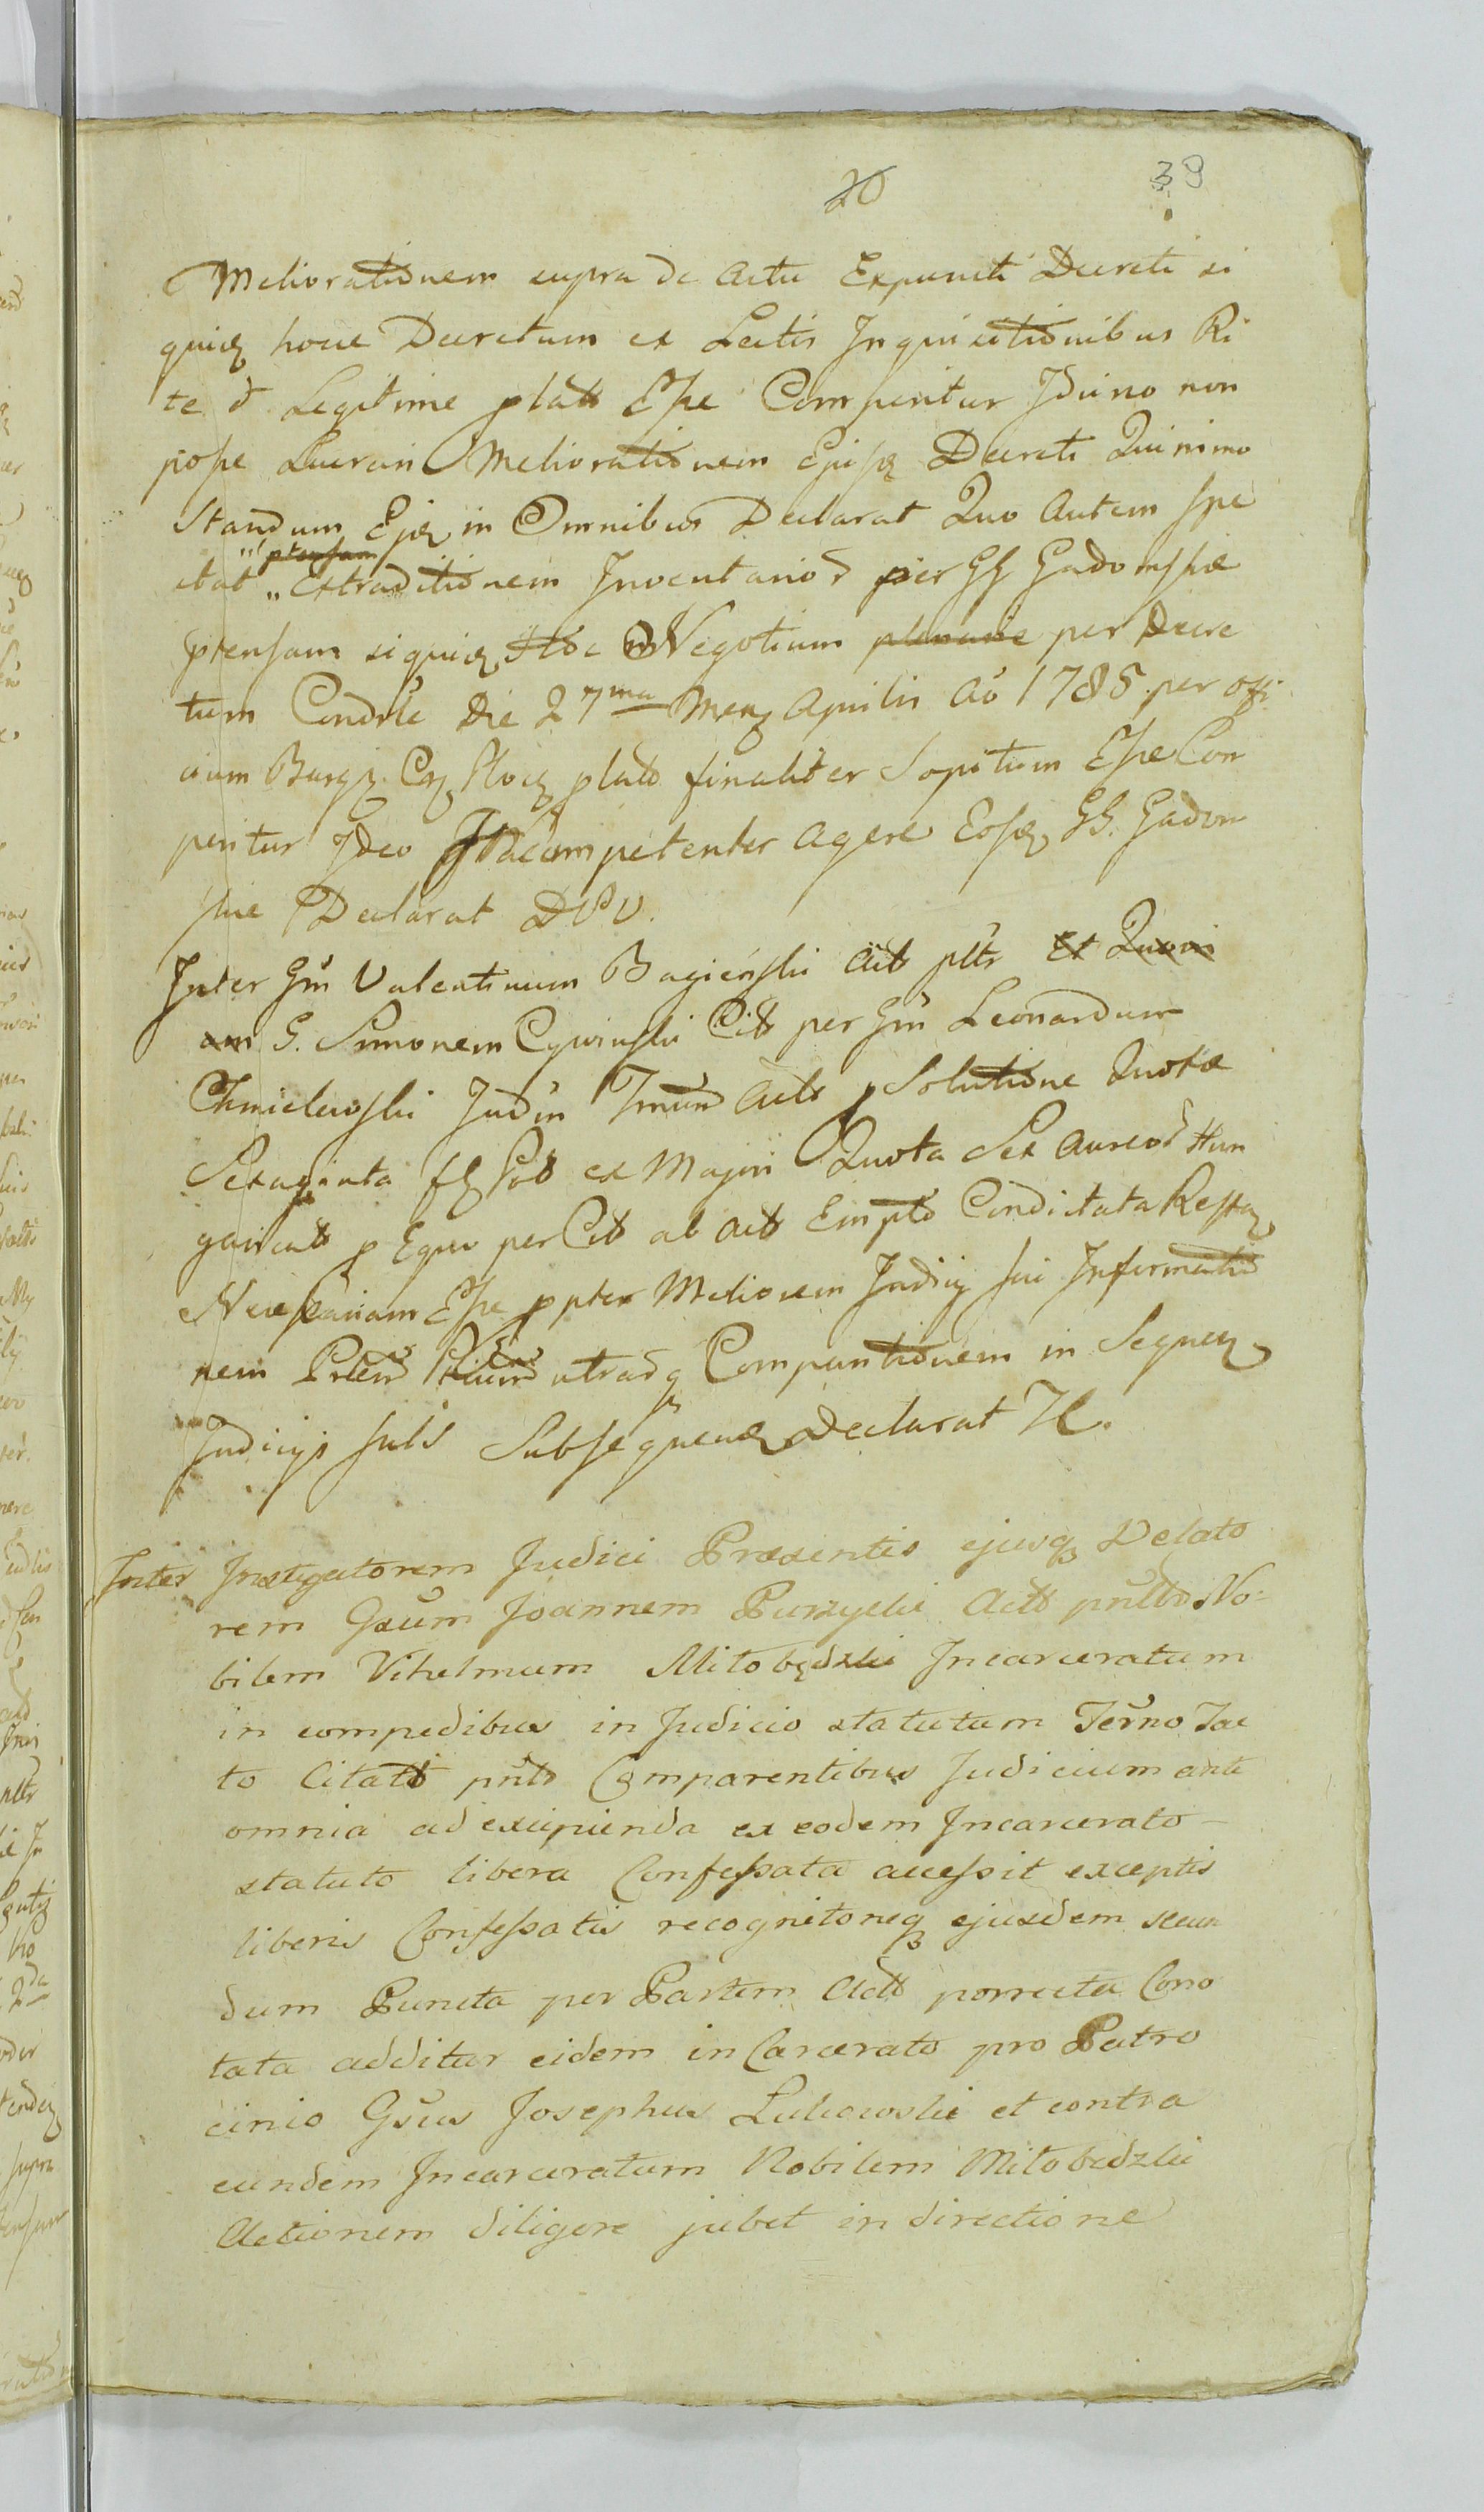 20 39
Meliorationem supra de Actu Expuncti Decreti si
quiq hocce Decretum ex Lectis Inquisitionibus Ri
te et Legitime platt Esse Comperitur Idcirco non
posse Lucrari Meliorationem Ejusq Decreti Quinimo
Standum Ejq in Omnibus Declarat Quo Autem spe
ctat Extraditionem Inventarior per GG Gadomskie
ptensam siquiq Hoc Negotium plenarie per Decre
tum Condrle Die 27ma Menq Aprilis Aō 1785 per offi
cium Burg. Cq Plocq platt finaliter Sopitum Esse Com
peritur Ideo Incompetenter Agere Eosq GG. Gadom
skie Declarat DPV.
Inter Gm Valentinum Bagieński Act pltr Et Quoni
am G. Simonem Cywinski Citt per Gm Leonardum
Chmielewski Judm Tmum Actt p Solutione Quotæ
Sexaginta fl Pol ex Majori Quota Sex Aureor Hun
garicatt p Equo per Citt ab Actt Empto Condictata Restaq
Necessariam Esse ppter Meliorem Judicij sui Informatio
nem Prtem utrasq Compartionem in Sequenq
Judicijs subs Subsequenq Declarat
Inter Instigatorem Judici Præsentis ejusq Delato
rem Gsum Joannem Purzycki Actt pnltr No-
bilem Vihelmum Mitobędzki Incarceratum
in compedibus in Judicio statutum Termo Tac
to Citatt pnltr Comparentibus Judicium ante
omnia ad excipienda ex eodem Incarcerato
statuto libera Confessata accessit exceptis
liberis Confessatis recognitoneq ejusdem secun
dum Puncta per Partem Actt porrecta Cono
tata additur eidem in Carcerato pro Patro
cinio Gsus Josephus Łukowski et contra
eundem Incarceratum Nobilem Mitobedzki
Actionem diligere jubet in directione